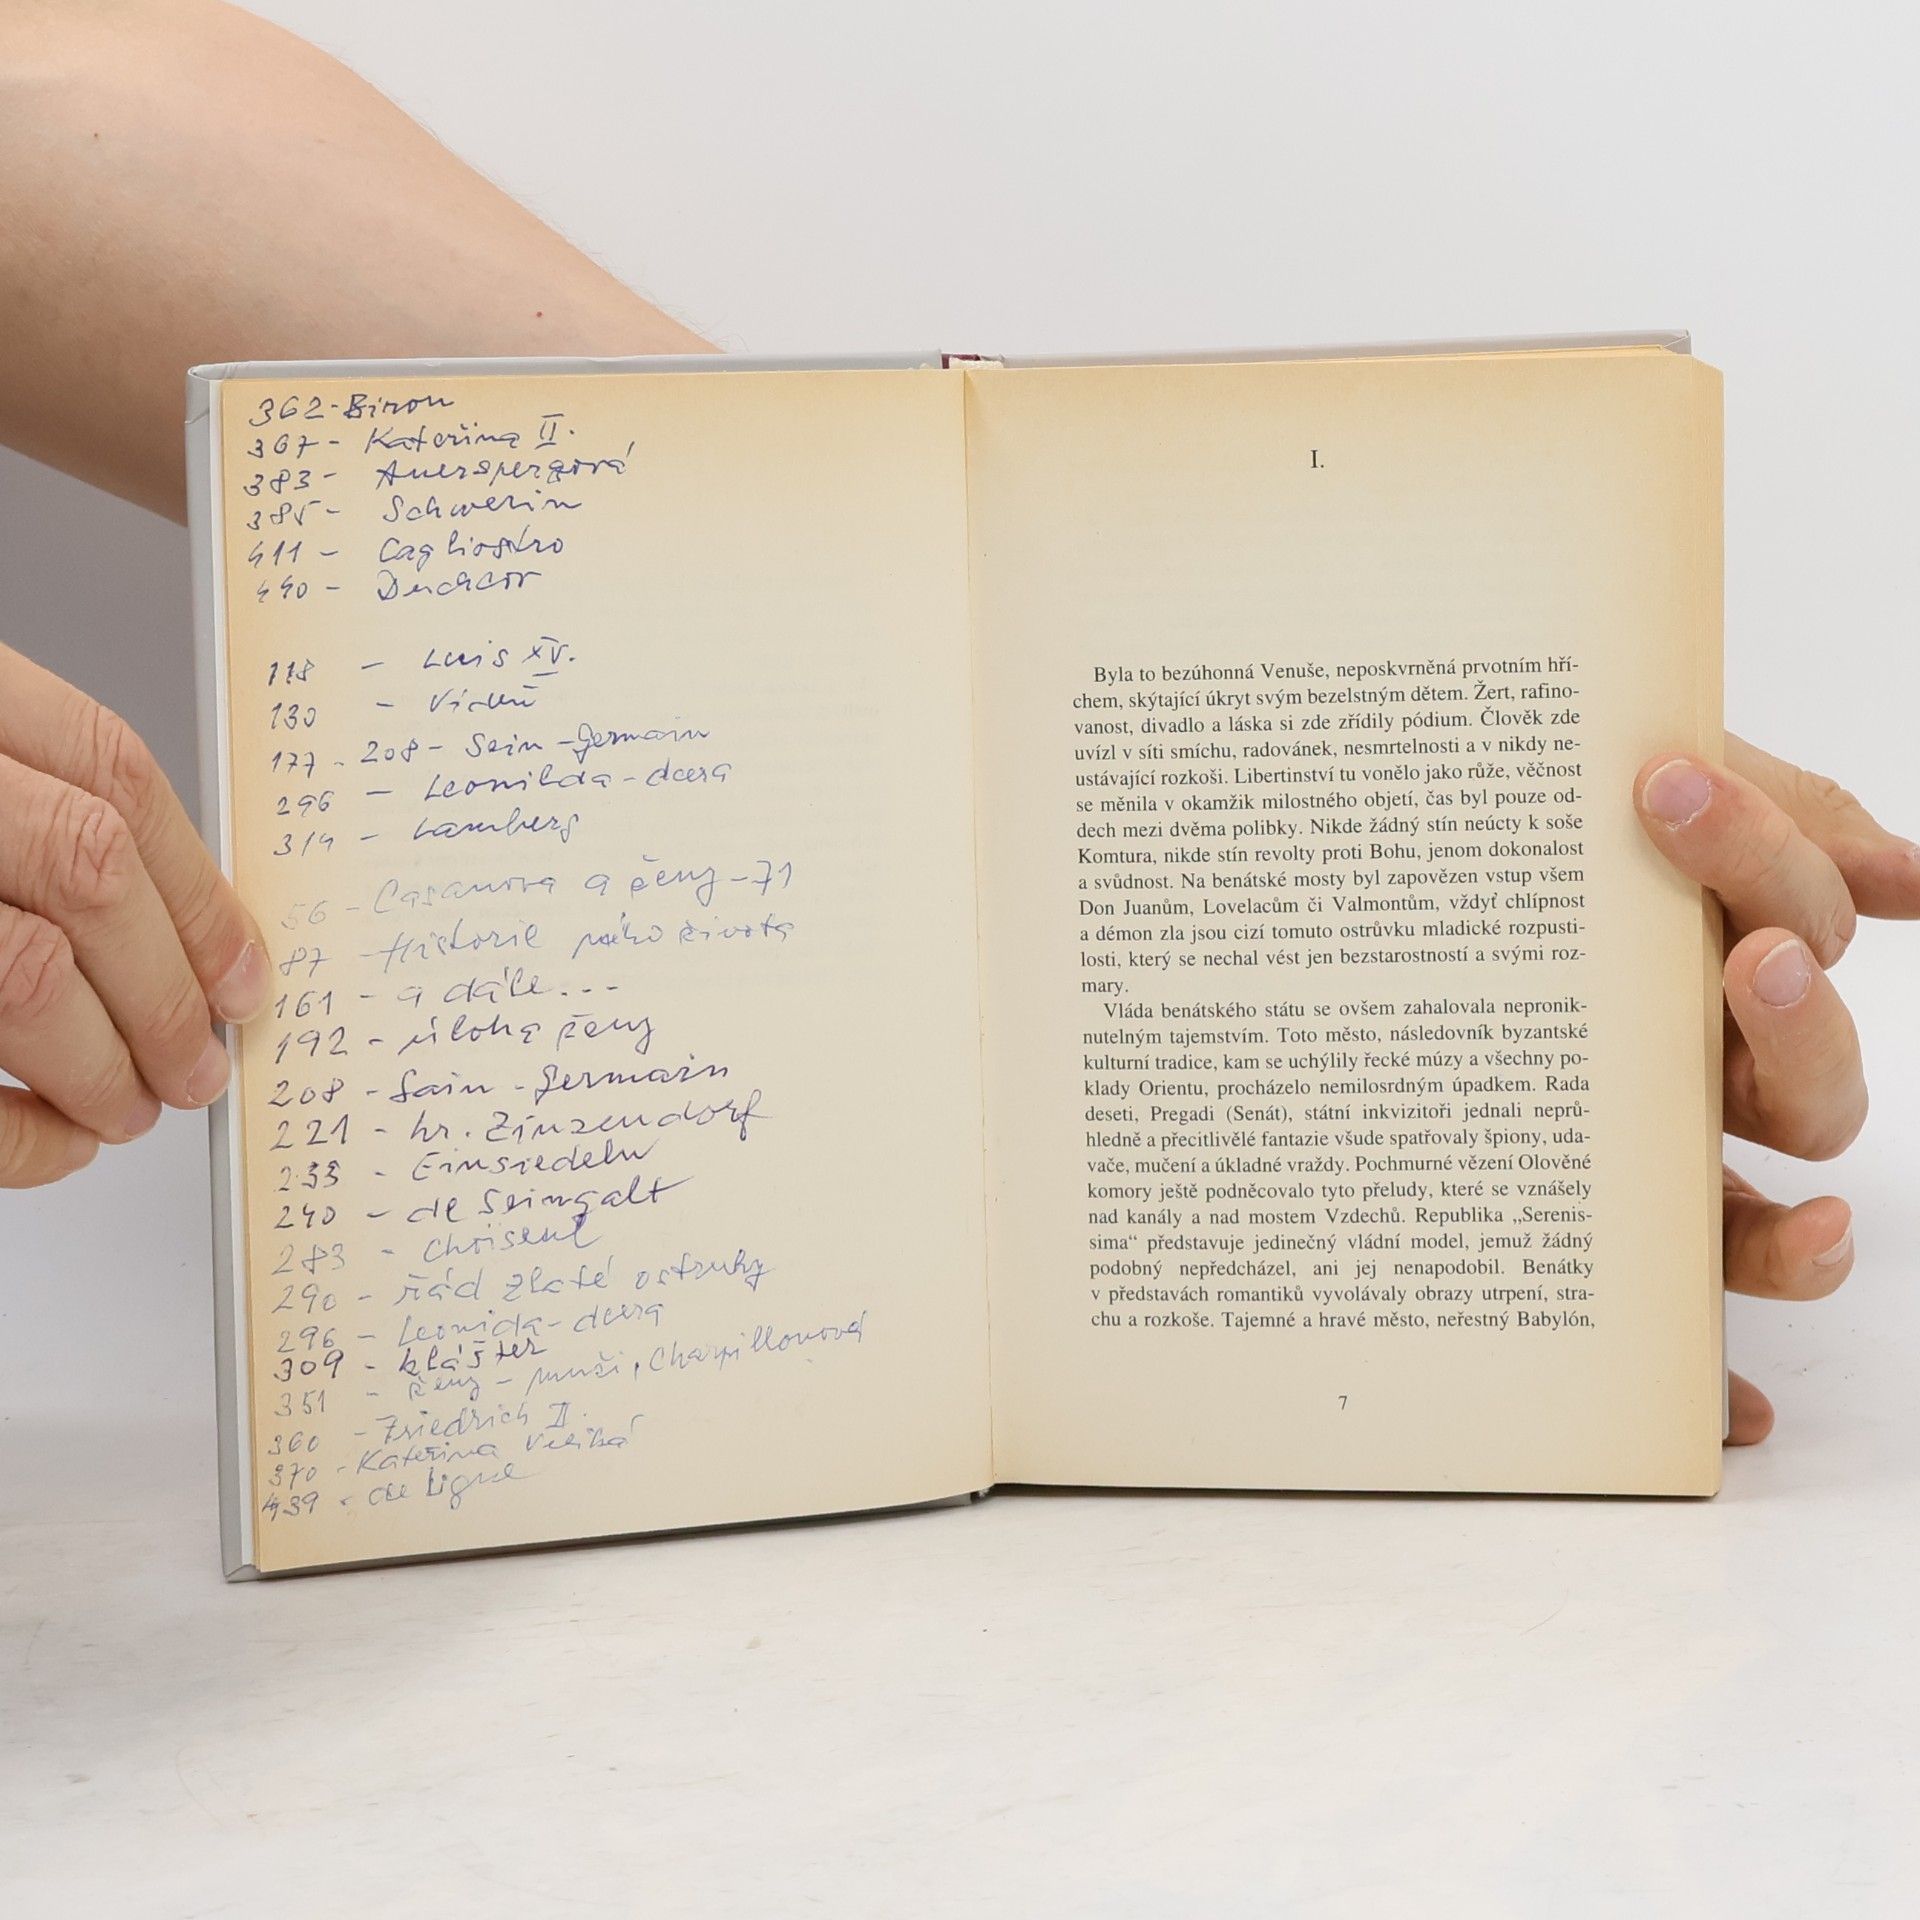 362 - Biron
367 - Kateřina II.
383 - Auerspergová
385 - Schwerin
411 - Cagliostro
440 - Duchcov
118 - Luis XV.
130 - Vídeň
177 - 208 - Sain - Germain
296 - Leonilda - dcera
314 - Lamberg
56 - Casanova a ženy - 71
87 - Historie mého života
161 - a dále...
192 - úloha ženy
208 - Sain - Germain
221 - hr. Zinzendorf
233 - Einsiedeln
240 - de Seingalt
283 - Choiseul
290 - řád zlaté ostruhy
296 - Leonida - dcera
309 - klášter
351 - ženy - muži, Charpillonová
360 - Friedrich II.
370 - Kateřina Veliká
439 - de Ligne
I.
Byla to bezúhonná Venuše, neposkvrněná prvotním hří-
chem, skýtající úkryt svým bezelstným dětem. Žert, rafino-
vanost, divadlo a láska si zde zřídily pódium. Člověk zde
uvízl v síti smíchu, radovánek, nesmrtelnosti a v nikdy ne-
ustávající rozkoši. Libertinství tu vonělo jako růže, věčnost
se měnila v okamžik milostného objetí, čas byl pouze od-
dech mezi dvěma polibky. Nikde žádný stín neúcty k soše
Komtura, nikde stín revolty proti Bohu, jenom dokonalost
a svůdnost. Na benátské mosty byl zapovězen vstup všem
Don Juanům, Lovelacům či Valmontům, vždyť chlípnost
a démon zla jsou cizí tomuto ostrůvku mladické rozpusti-
losti, který se nechal vést jen bezstarostností a svými roz-
mary.
Vláda benátského státu se ovšem zahalovala nepronik-
nutelným tajemstvím. Toto město, následovník byzantské
kulturní tradice, kam se uchýlily řecké múzy a všechny po-
klady Orientu, procházelo nemilosrdným úpadkem. Rada
deseti, Pregadi (Senát), státní inkvizitoři jednali neprů-
hledně a přecitlivělé fantazie všude spatřovaly špiony, uda-
vače, mučení a úkladné vraždy. Pochmurné vězení Olověné
komory ještě podněcovalo tyto přeludy, které se vznášely
nad kanály a nad mostem Vzdechů. Republika „Serenis-
sima“ představuje jedinečný vládní model, jemuž žádný
podobný nepředcházel, ani jej nenapodobil. Benátky
v představách romantiků vyvolávaly obrazy utrpení, stra-
chu a rozkoše. Tajemné a hravé město, neřestný Babylón,
7